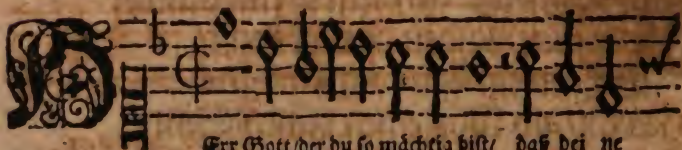 HErr Gott/der du so mächtig bist/ daß dei ne